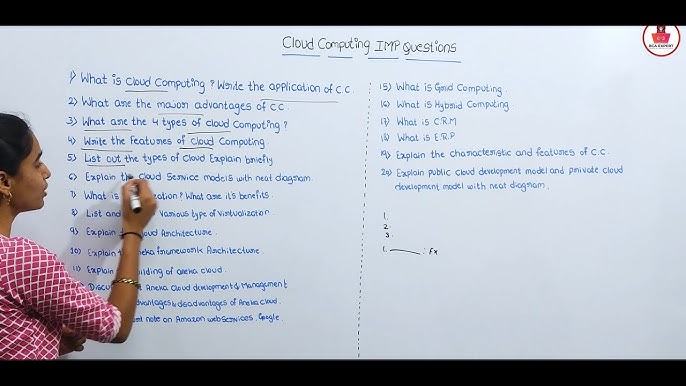 Cloud Computing IMP Questions
BCA EXPERT
1) What is Cloud Computing? Write the application of C.C.
2) What are the major advantages of C.C.
3) What are the 4 types of cloud Computing?
4) Write the Features of cloud Computing.
5) List out the types of Cloud Explain briefly
6) Explain the cloud Service models with neat diagram.
7) What is ization? What are it's benefits.
8) List and Various type of Virtualization
9) Explain oud Architecture.
10) Explain Aneka framework Architecture.
11) Explain Building of aneka cloud.
Discu Aneka Cloud development & Management
dvantages & disadvantages of Aneka Cloud.
note on Amazon web Services, Google.
15) What is Grid Computing.
16) What is Hybrid Computing
17) What is C.R.M
18) What is E.R.P
19) Explain the characteristic and features of C.C.
20) Explain public cloud development model and private cloud
development model with neat diagram.
1.
2.
3.
1. : Ex